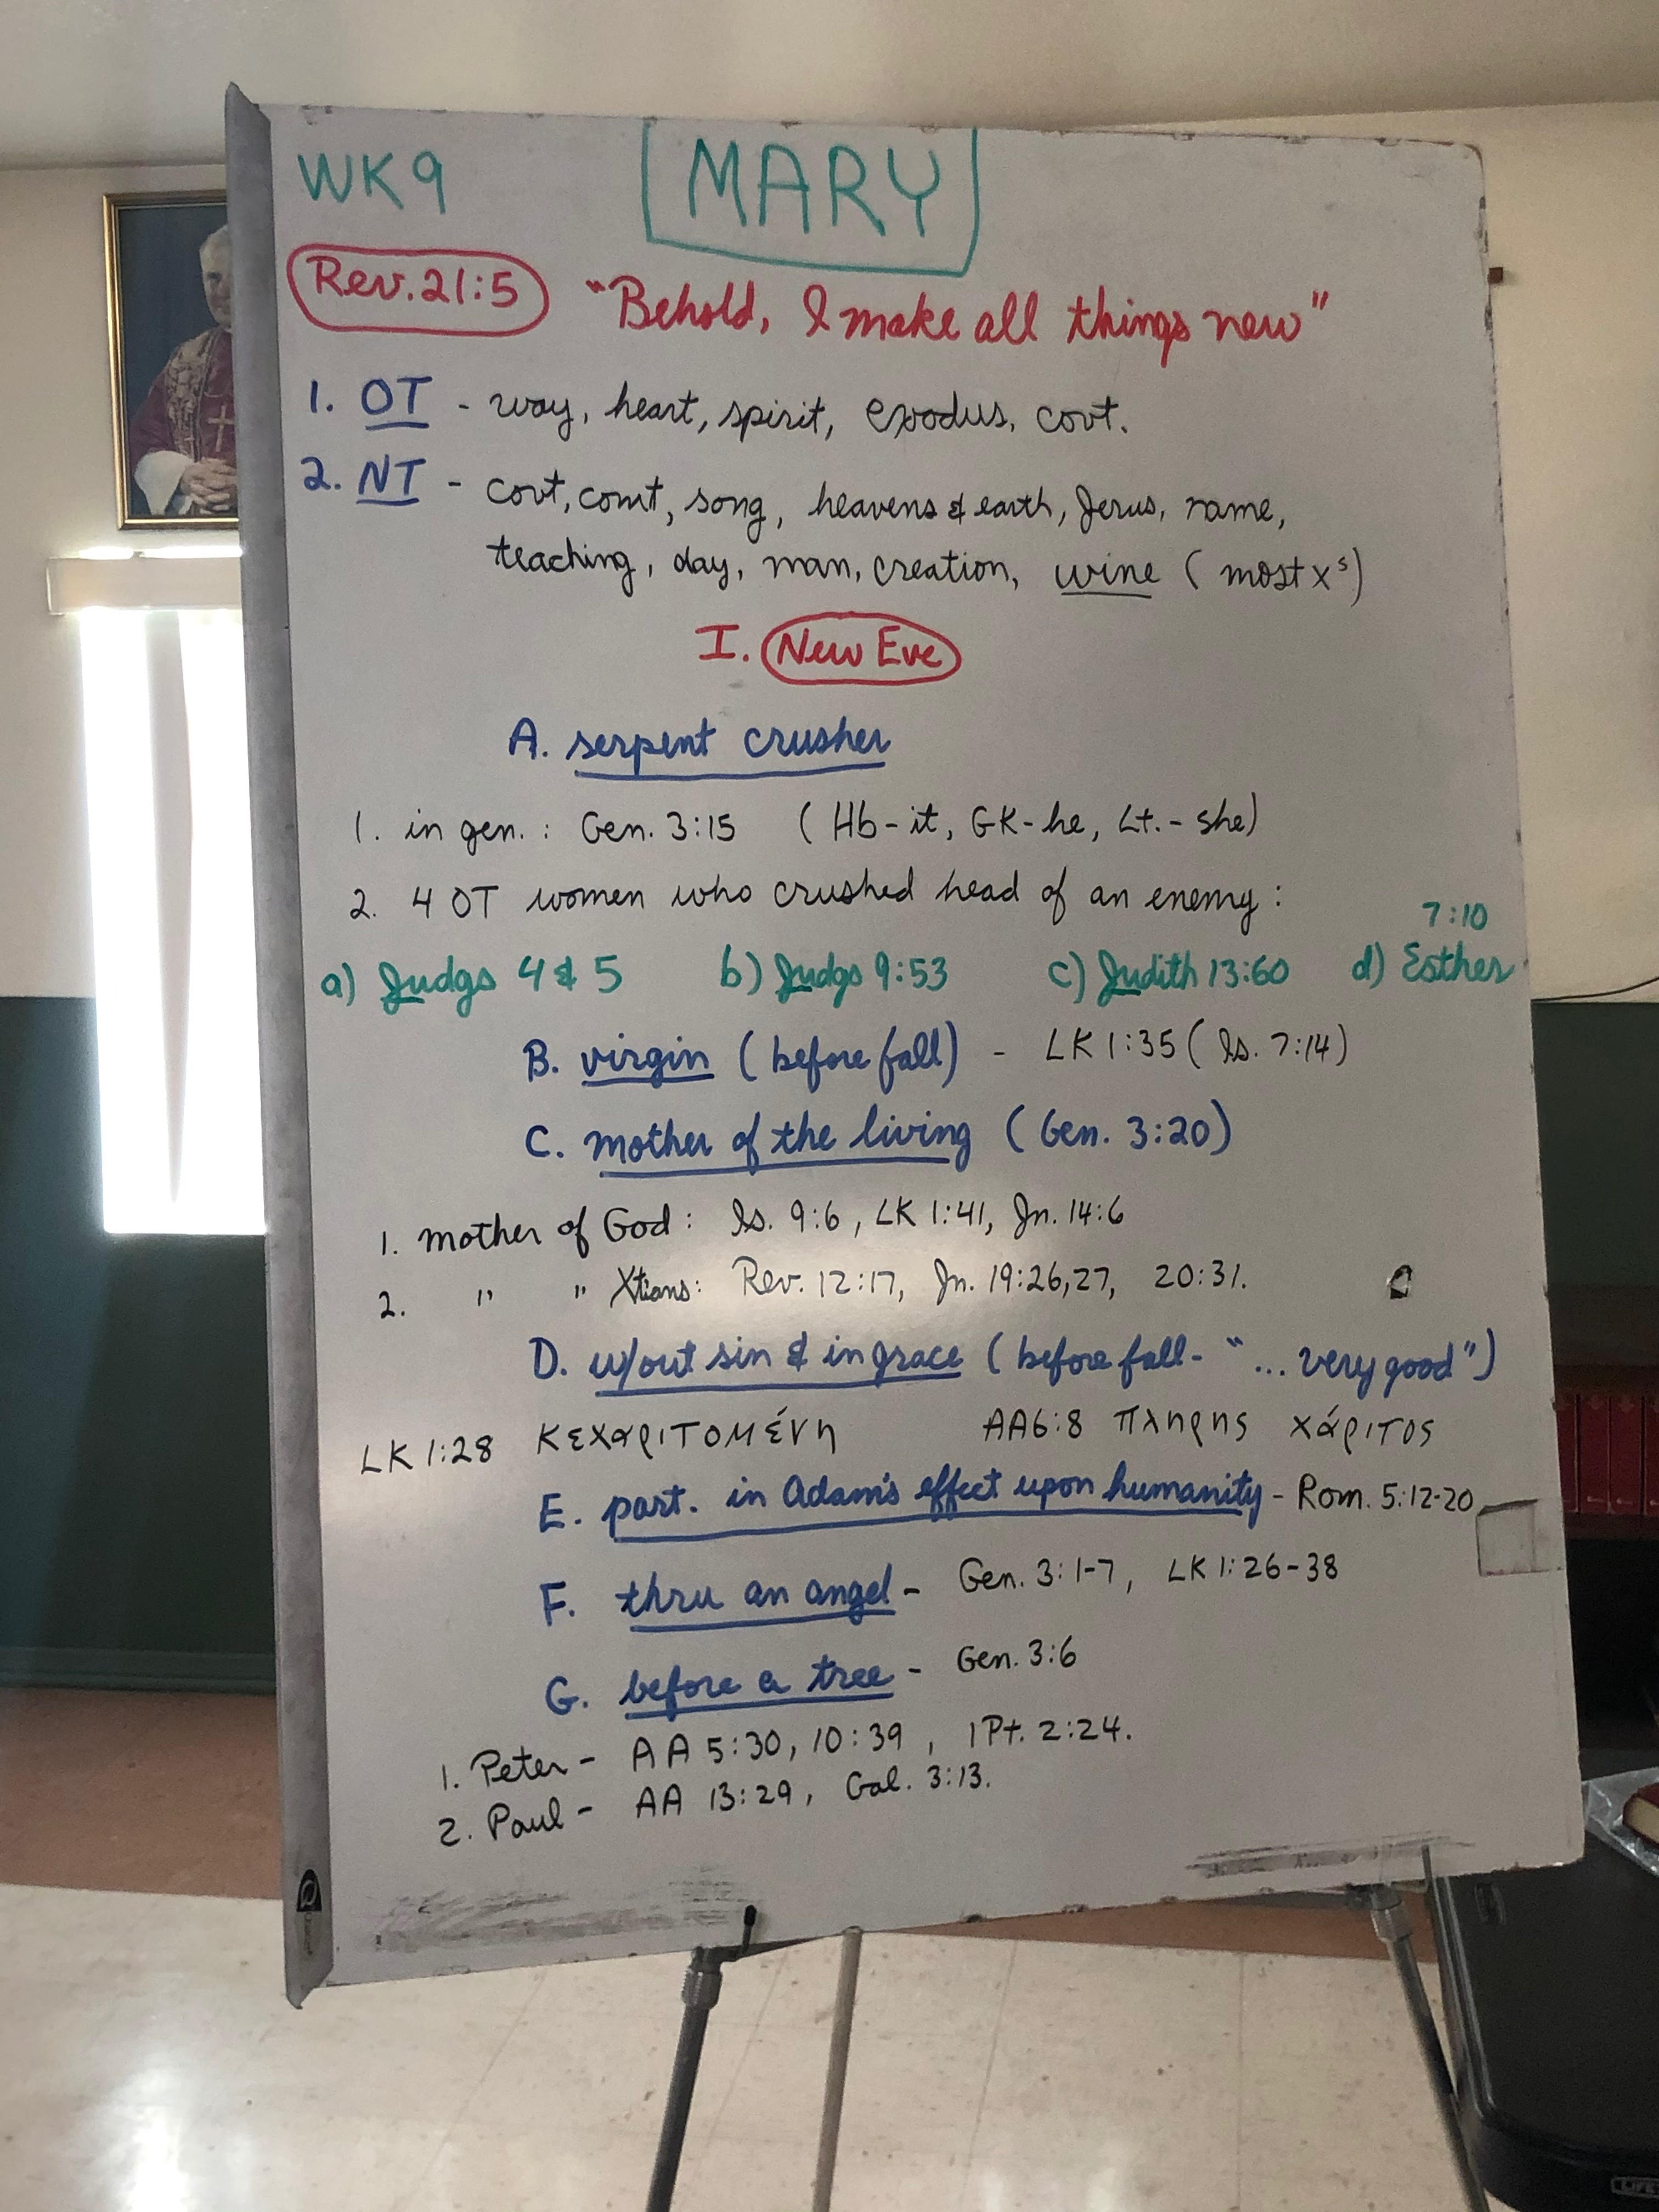 WK 9 MARY
Rev. 21:5 "Behold, I make all things new"
1. OT - way, heart, spirit, exodus, covt.
2. NT - covt, comt, song, heavens & earth, Jerus, name,
teaching, day, man, creation, wine (most xˢ)
I. New Eve
A. serpent crusher
1. in gen. : Gen. 3:15 (Hb-it, GK-he, Lt.-she)
2. 4 OT women who crushed head of an enemy:
7:10
a) Judgs 4 & 5 b) Judgs 9:53 c) Judith 13:60 d) Esther
B. virgin (before fall) - LK 1:35 (Is. 7:14)
C. mother of the living (Gen. 3:20)
1. mother of God: Is. 9:6, LK 1:41, Jn. 14:6
2. " " Xtians: Rev. 12:17, Jn. 19:26,27, 20:31.
D. w/out sin & in grace (before fall - "... very good")
LK 1:28 ΚεχαριτοΜένη AA6:8 πληρης χάριτος
E. part. in Adam's effect upon humanity - Rom. 5:12-20
F. thru an angel - Gen. 3:1-7, LK 1:26-38
G. before a tree - Gen. 3:6
1. Peter - AA 5:30, 10:39, 1 Pt. 2:24.
2. Paul - AA 13:29, Gal. 3:13.